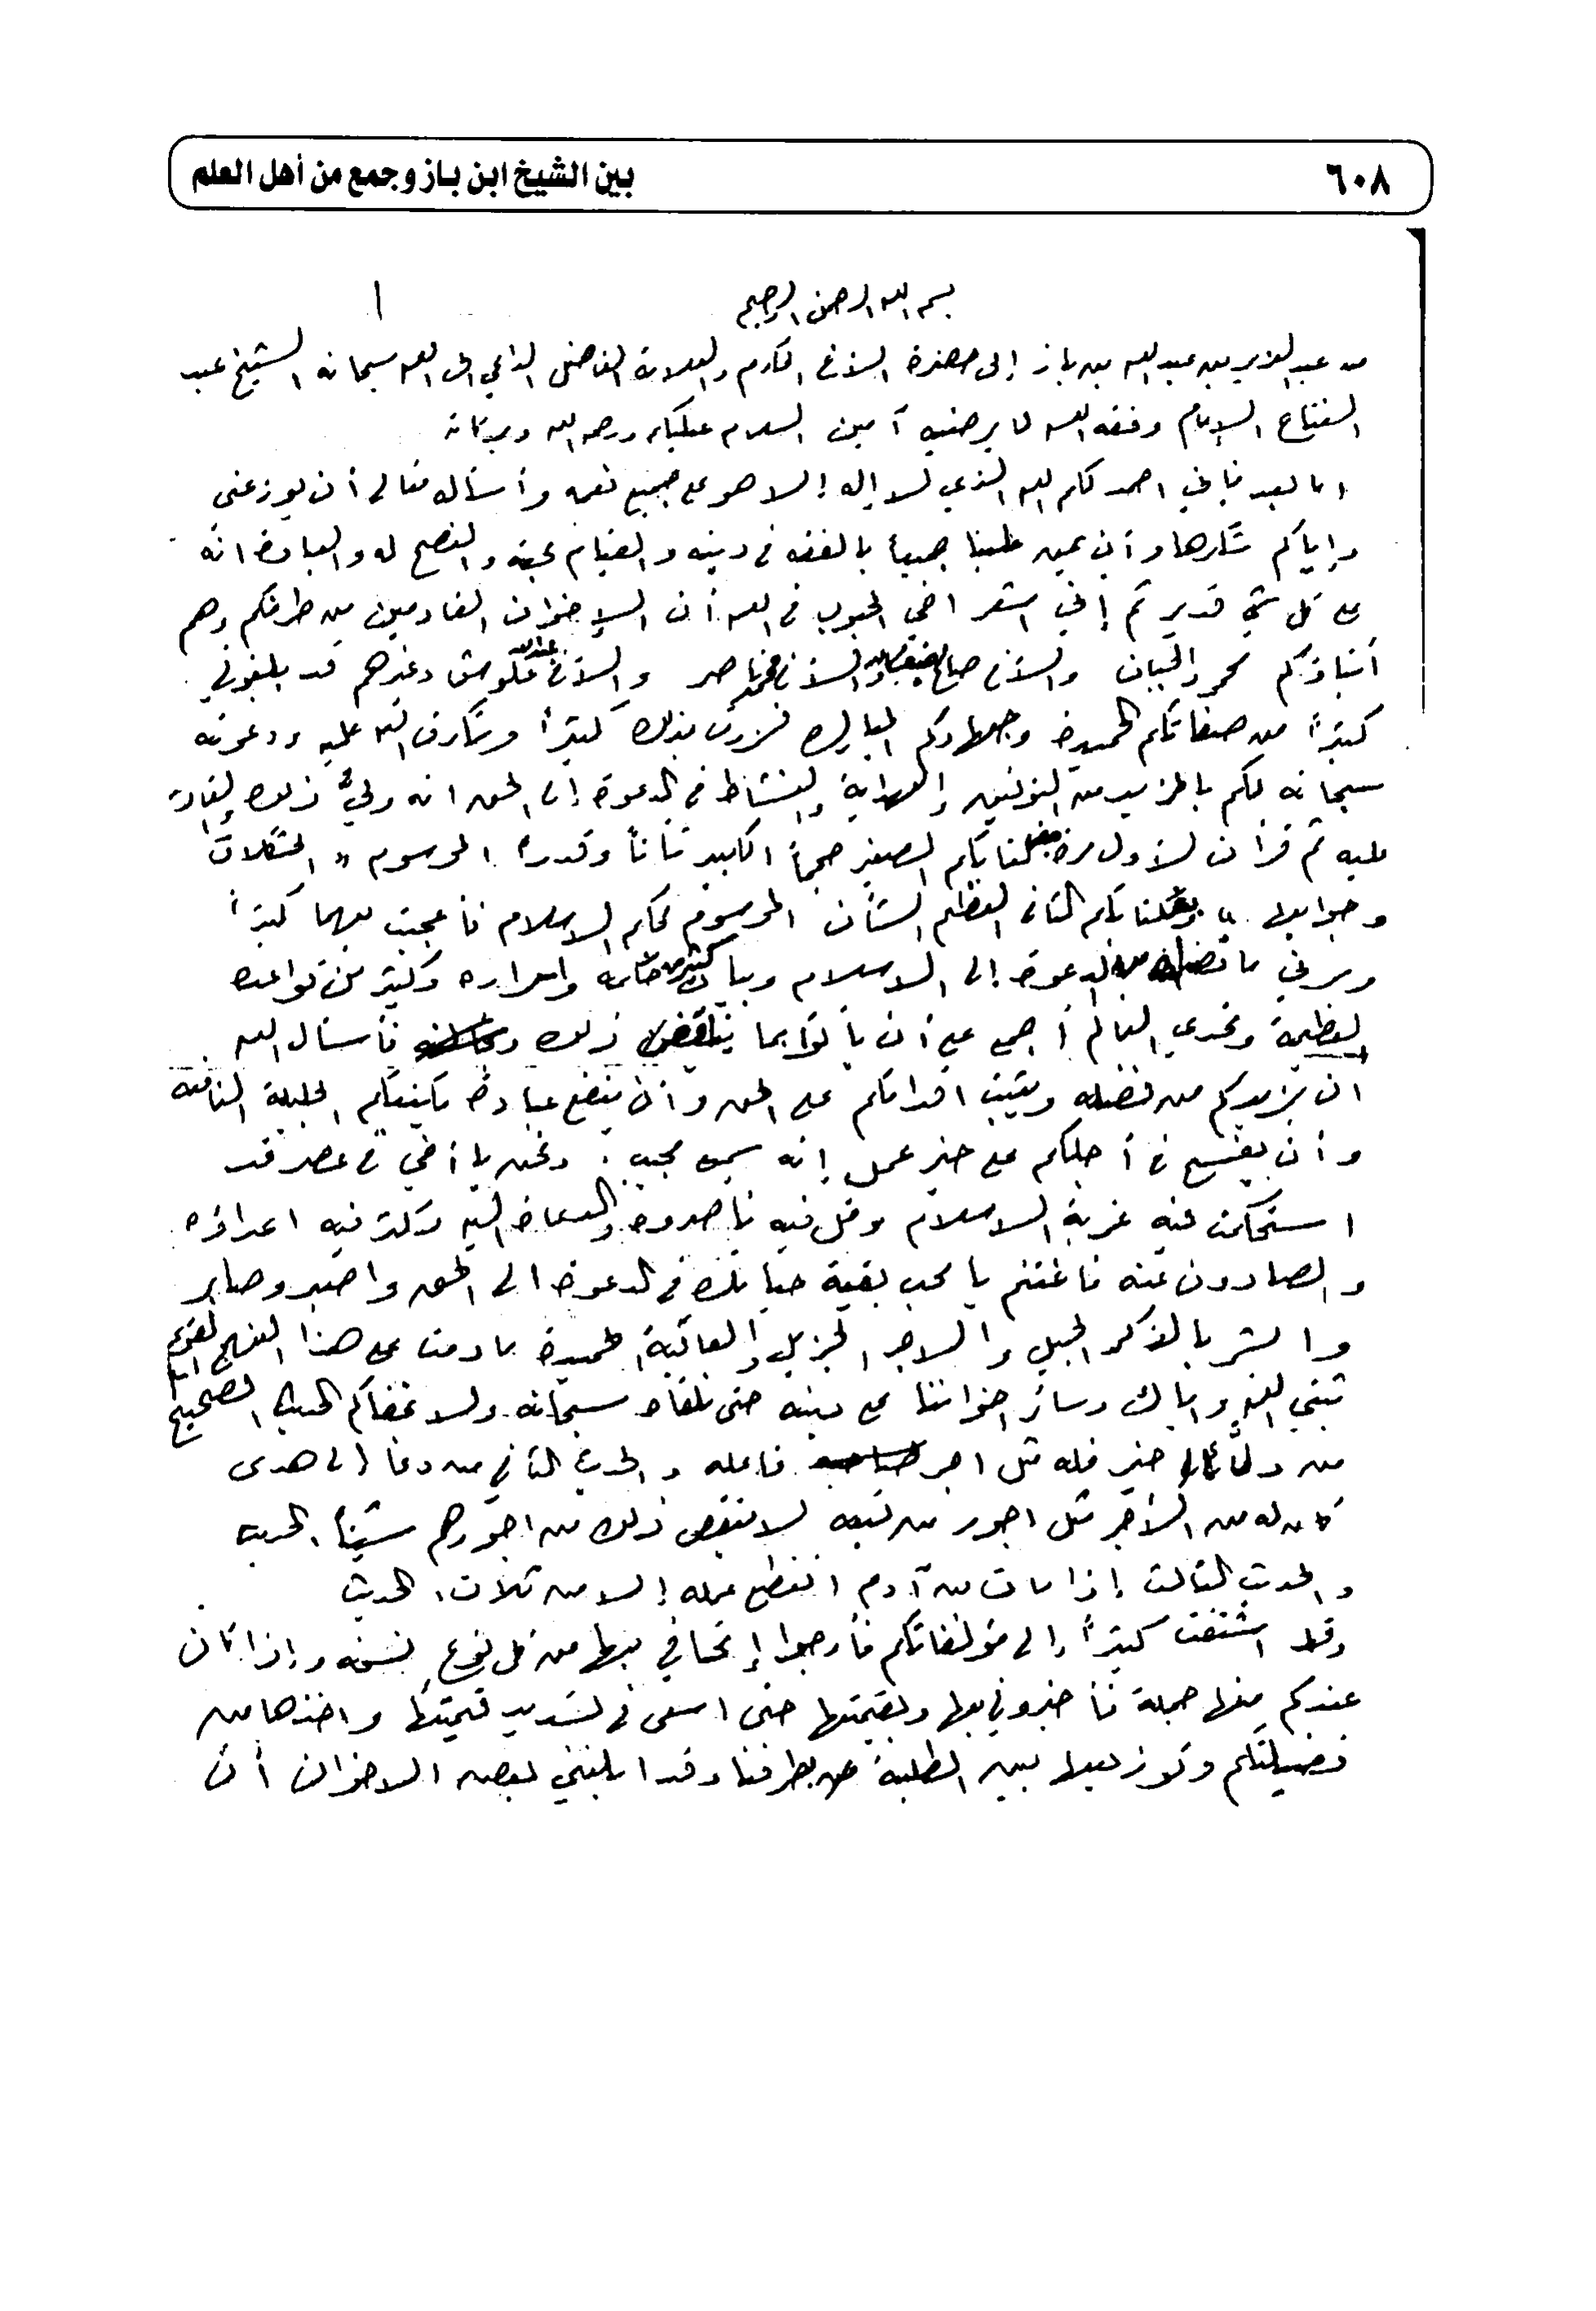 ٦٠٨
بين الشيخ ابن باز وجمع من أهل العلم
بسم الله الرحمن الرحيم
من عبد العزيز بن عبد الله بن باز إلى حضرة الأخ المكرم والعلامة الفاضل الداعي الى الله سبحانه الشيخ عبد
الفتاح الإمام وفقه الله لما يرضيه آمين السلام عليكم ورحمة الله وبركاته
اما بعد فإني احمد لكم الله الذي لا إله إلا هو على جميع نعمه وأسأله تعالى أن يوزعني
وإياكم شكرها وأن يمن علينا جميعاً بالفقه في دينه والقيام بحقه والنصح له والعباده انه
على كل شيء قدير ثم إني اشعر اخي المحبوب في الله أن الإخوان القادمين من طرفكم وهم
أستاذكم والأخ صالح والأخ محمد ناصر والأخ عبد الله علوش وغيرهم قد بلغوني
كثيراً من صفاتكم الحميدة وجهادكم المبارك فسررت بذلك كثيراً وشكرت الله عليه ودعوته
سبحانه لكم بالمزيد من التوفيق والهداية والنشاط في الدعوة إلى الحق انه وليُّ ذلك والقادر
عليه ثم قرأت لأول مرة كتابكم الصغير حجماً الكبير شأناً وقدراً الموسوم " المشكلات
وجوابها " وكتابكم الثاني العظيم الشأن الموسوم لمحكم الإسلام فأعجبت بهما كثيراً
وسرني ما من الدعوة إلى الاسلام وبيان كثير من محاسنه واسراره وكثير من قواعده
العظيمة وتحدي العالم أجمع على أن يأتوا بما يناقض ذلك فأسأل الله
ان يزيدكم من فضله ويثبت اقدامكم على الحق وأن ينفع عباده بكتبكم الجليلة النافعه
وأن يفسح في أجلكم على خير عمل إنه سميع مجيب . ونحن يا أخي في عصر قد
استحكمت فيه غربة الاسلام وقل فيه ناصروه والدعاة إليه وكثر فيه اعداؤه
والصادون عنه فاغتنم يا محب بقية حياتك في الدعوة الى الحق واصبر وصابر
وابشر بالذكر الجميل والاجر الجزيل والعاقبة الحميدة ما دمت على هذا النهج القويم
ثبتني الله وإياك وسائر اخواننا على دينه حتى نلقاه سبحانه ولا يخفاكم الحديث الصحيح
من دل على خير فله مثل اجر فاعله والحديث الثاني من دعا إلى هدى
كان له من الأجر مثل اجور من تبعه لا ينقص ذلك من اجورهم شيئاً الحديث
والحديث الثالث إذا مات ابن آدم انقطع عمله إلا من ثلاث، الحديث
وقد اشتقت كثيراً إلى مؤلفاتكم فأرجوا إتحافي بها من كل نوع نسخه وإذا كان
عندكم منها جملة فأخبروني بها وبقيمتها حتى اسعى في تسديد قيمتها واخذها من
فضيلتكم وتوزيعها بين الطلبة بطرفنا وقد ابلغني بعض الاخوان أن